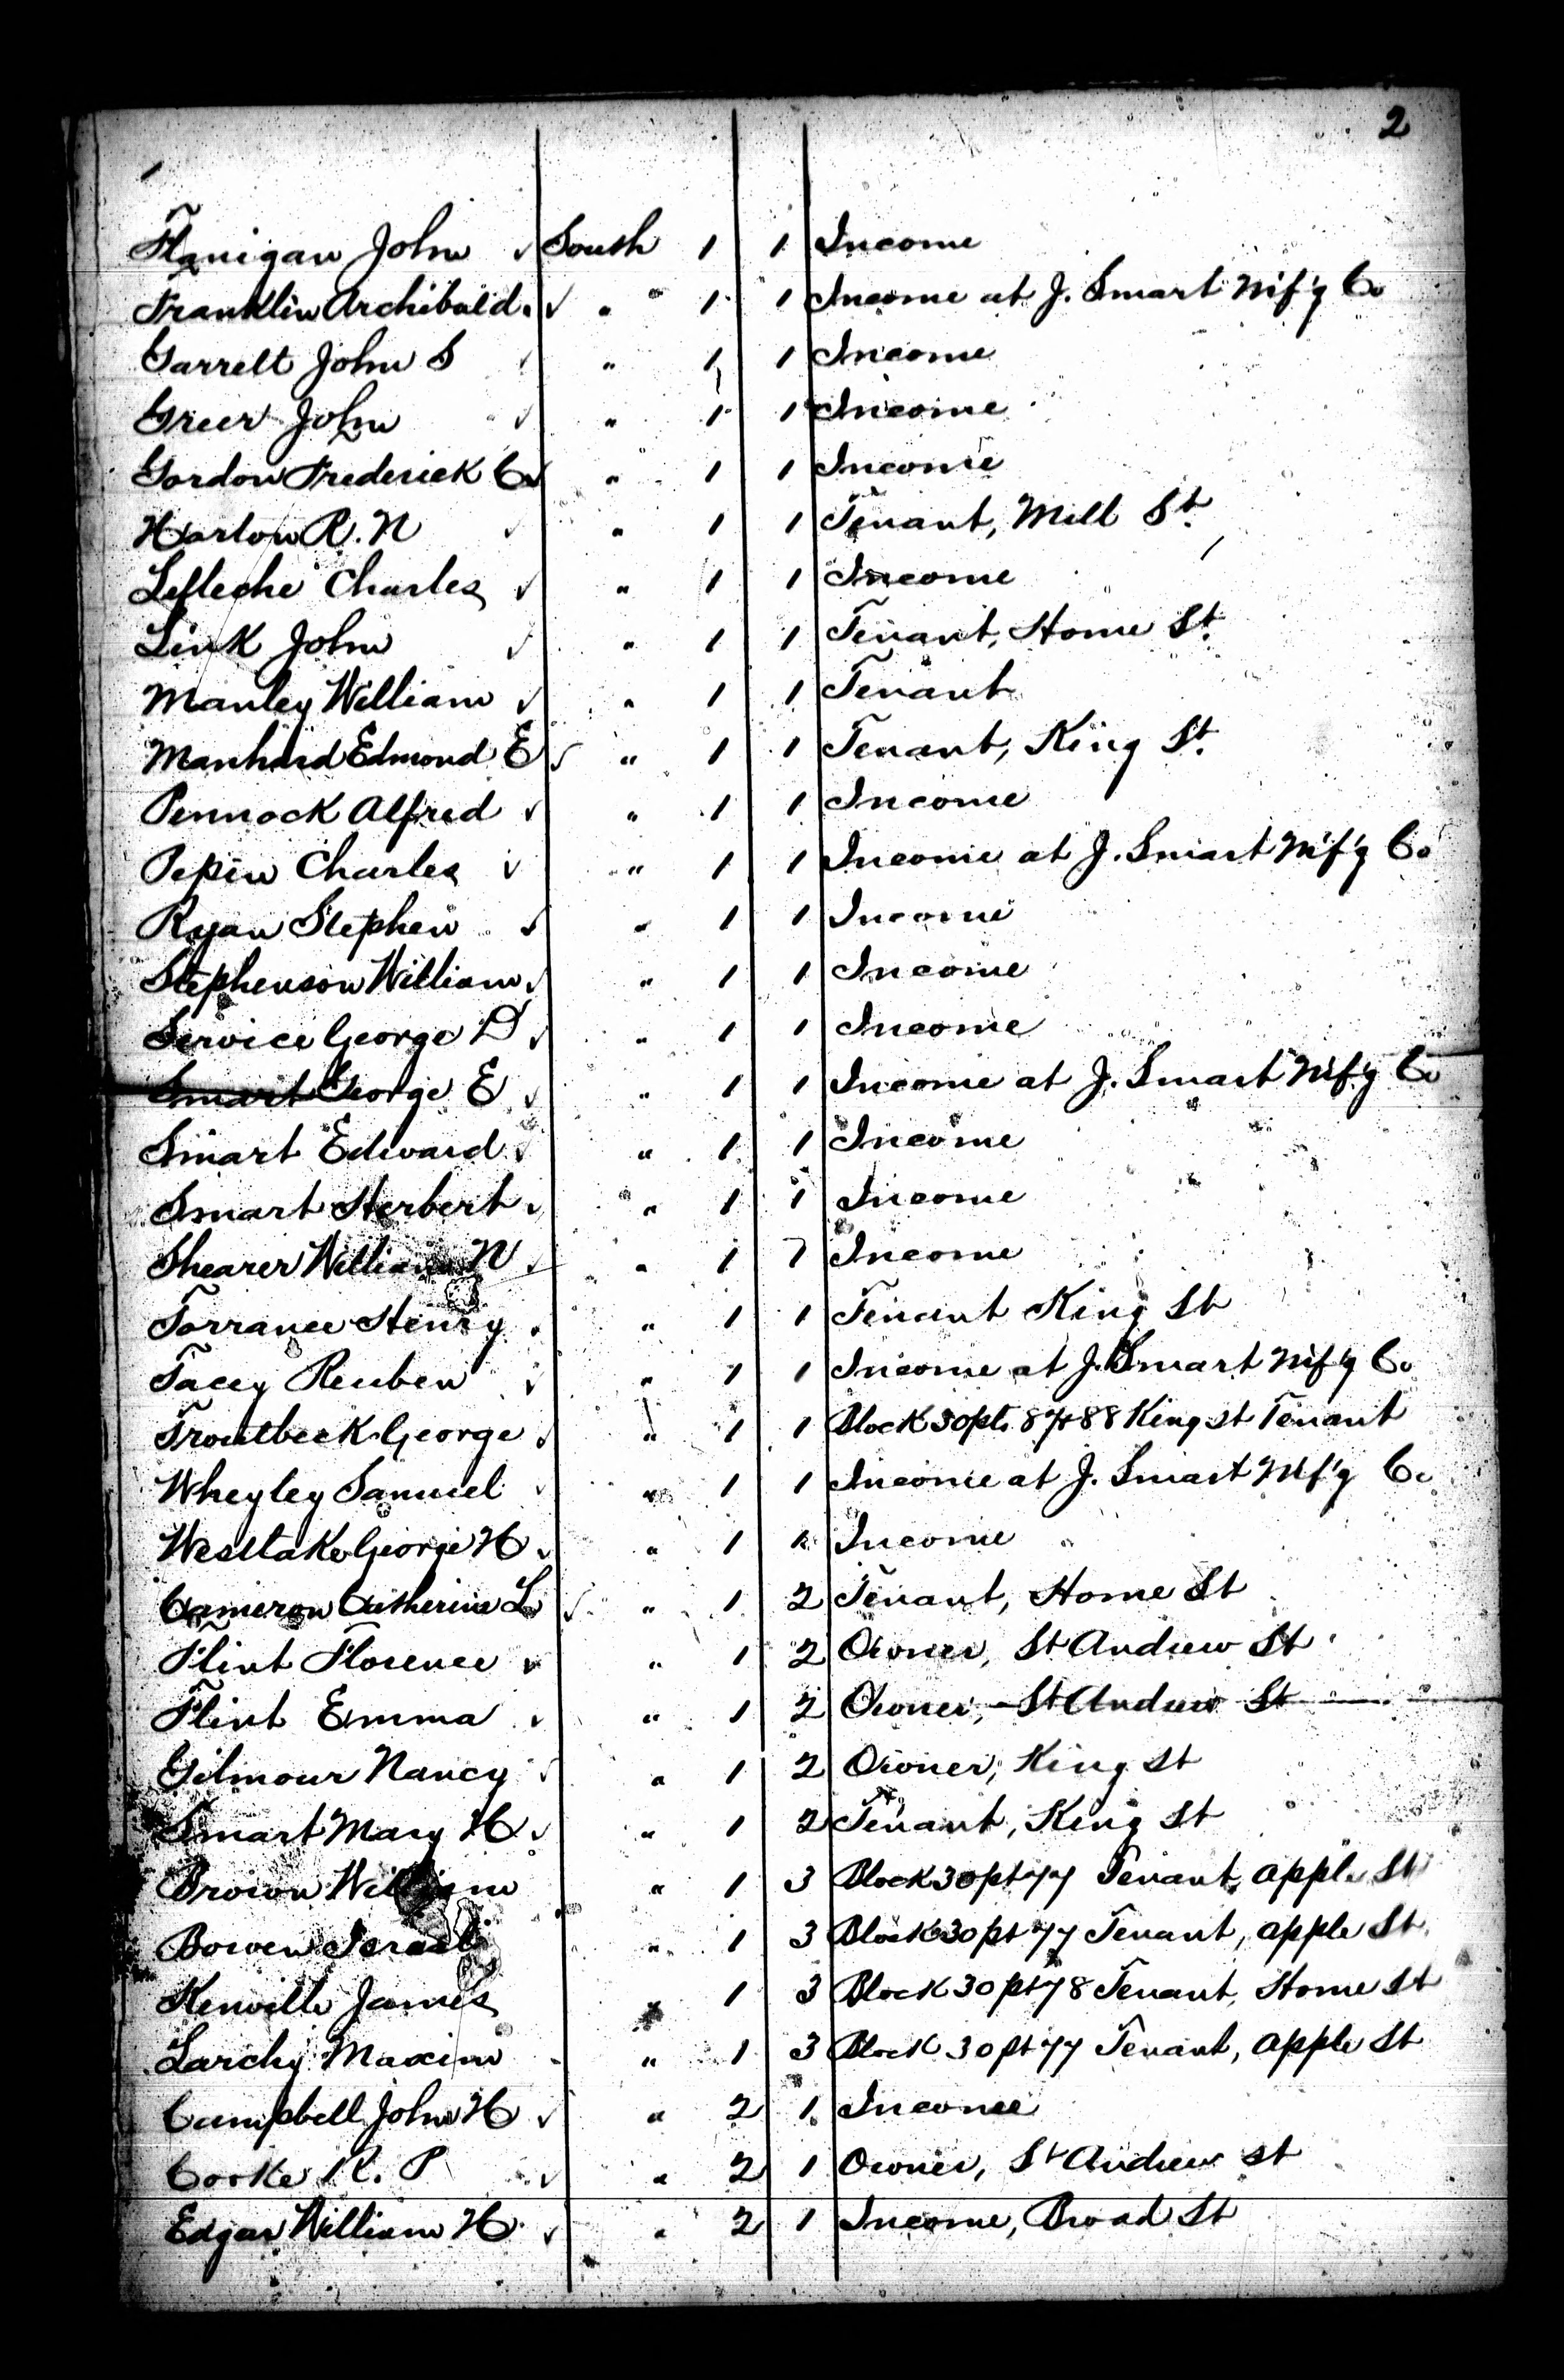 2
Flanigan John ✓ South 1 1 Income
Franklin Archibald. ✓ " " 1 1 Income at J. Smart M'f'g Co
Garrett John S ✓ " 1 1 Income
Greer John ✓ " 1 1 Income
Gordon Frederick C ✓ " 1 1 Income
Harton R. N ✓ " 1 1 Tenant, Mill St.
Lefleche Charles ✓ " 1 1 Income
Link John ✓ " 1 1 Tenant, Home St.
Manley William ✓ " 1 1 Tenant
Manhard Edmond E ✓ " 1 1 Tenant, King St.
Pennock Alfred ✓ " 1 1 Income
Pepin Charles ✓ " 1 1 Income at J. Smart M'f'g Co
Ryan Stephen ✓ " 1 1 Income
Stephenson William ✓ " 1 1 Income
Service George D ✓ " 1 1 Income
Smart George E ✓ " 1 1 Income at J. Smart M'f'g Co
Smart Edward ✓ " 1 1 Income
Smart Herbert ✓ " 1 1 Income
Shearer William N ✓ " 1 1 Income
Torrance Henry " 1 1 Tenant King St
Tacey Reuben ✓ " 1 1 Income at J. Smart M'f'g Co
Troutbeck George ✓ " 1 1 Block 30 pts 87+88 King St Tenant
Wheyley Samuel ✓ " 1 1 Income at J. Smart M'f'g Co
Westlake George H ✓ " 1 Income
Cameron Catherine L ✓ " 1 2 Tenant, Home St
Flint Florence ✓ " 1 2 Owner, St Andrew St
Flint Emma ✓ " 1 2 Owner, St Andrew St
Gilmour Nancy ✓ " 1 2 Owner, King St
Smart Mary H ✓ " 1 2 Tenant, King St
Brown William " 1 3 Block 30 pt 77 Tenant, Apple St
Bowen Israel " 1 3 Block 30 pt 77 Tenant, Apple St
Kenville James " 1 3 Block 30 pt 78 Tenant, Home St
Larchy Maxim " 1 3 Block 30 pt 77 Tenant, Apple St
Campbell John H ✓ " 2 1 Income
Cooke R. P ✓ " 2 1 Owner, St Andrew St
Edgar William H ✓ " 2 1 Income, Broad St